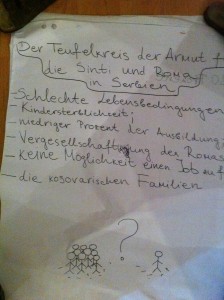 Der Teufelkreis der Armut f
die Sinti und Romas
in Serbien
Schlechte Lebensbedingungen
- Kindersterblichkeit;
- niedriger Prozent der Ausbildung;
- Vergesellschaftung der Romas
- keine Möglichkeit einen Job auf
- die kosovarischen Familien
?